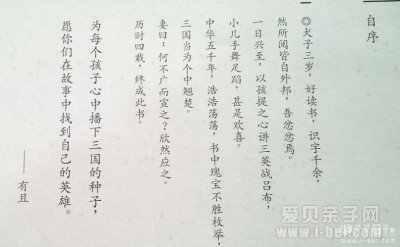 自序
◎犬子三岁，好读书，识字千余，
然所阅皆自外邦，吾忿忿焉。
一日兴至，以孩提之心讲三英战吕布，
小儿手舞足蹈，甚是欢喜。
中华五千年，浩浩荡荡，书中瑰宝不胜枚举，
三国当为个中翘楚。
妻曰：何不广而宣之？欣然应之。
历时四载，终成此书。
为每个孩子心中播下三国的种子，
愿你们在故事中找到自己的英雄。
——有且
爱贝亲子网
www.i-ber.com